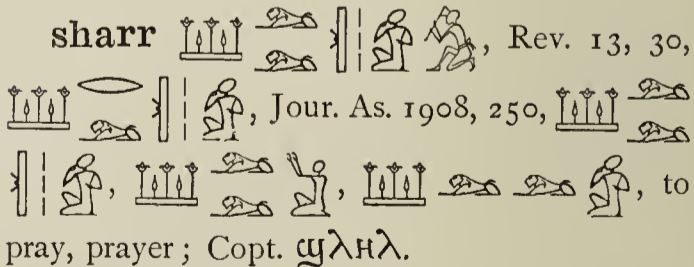 sharr 𓆷𓃭𓃭𓏜𓏤𓀁𓀜, Rev. 13, 30,
𓆷𓂋𓃭𓏜𓏤𓀁, Jour. As. 1908, 250, 𓆷𓃭𓃭
𓏜𓏤𓀁, 𓆷𓃭𓃭𓀃, 𓆷𓃭𓃭𓀁, to
pray, prayer; Copt. ϣⲗⲏⲗ.